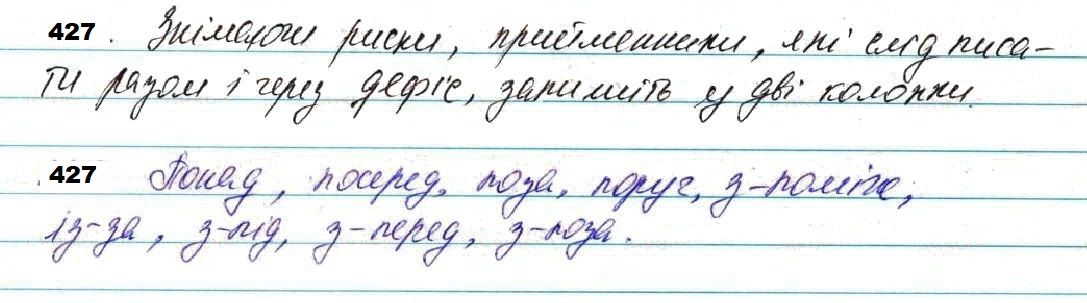 427. Знімаючи риски, прийменники, які слід писа-
ти разом і через дефіс, запишіть у дві колонки.
427 Понад, посеред, поза, поруч, з-поміж,
із-за, з-під, з-перед, з-поза.